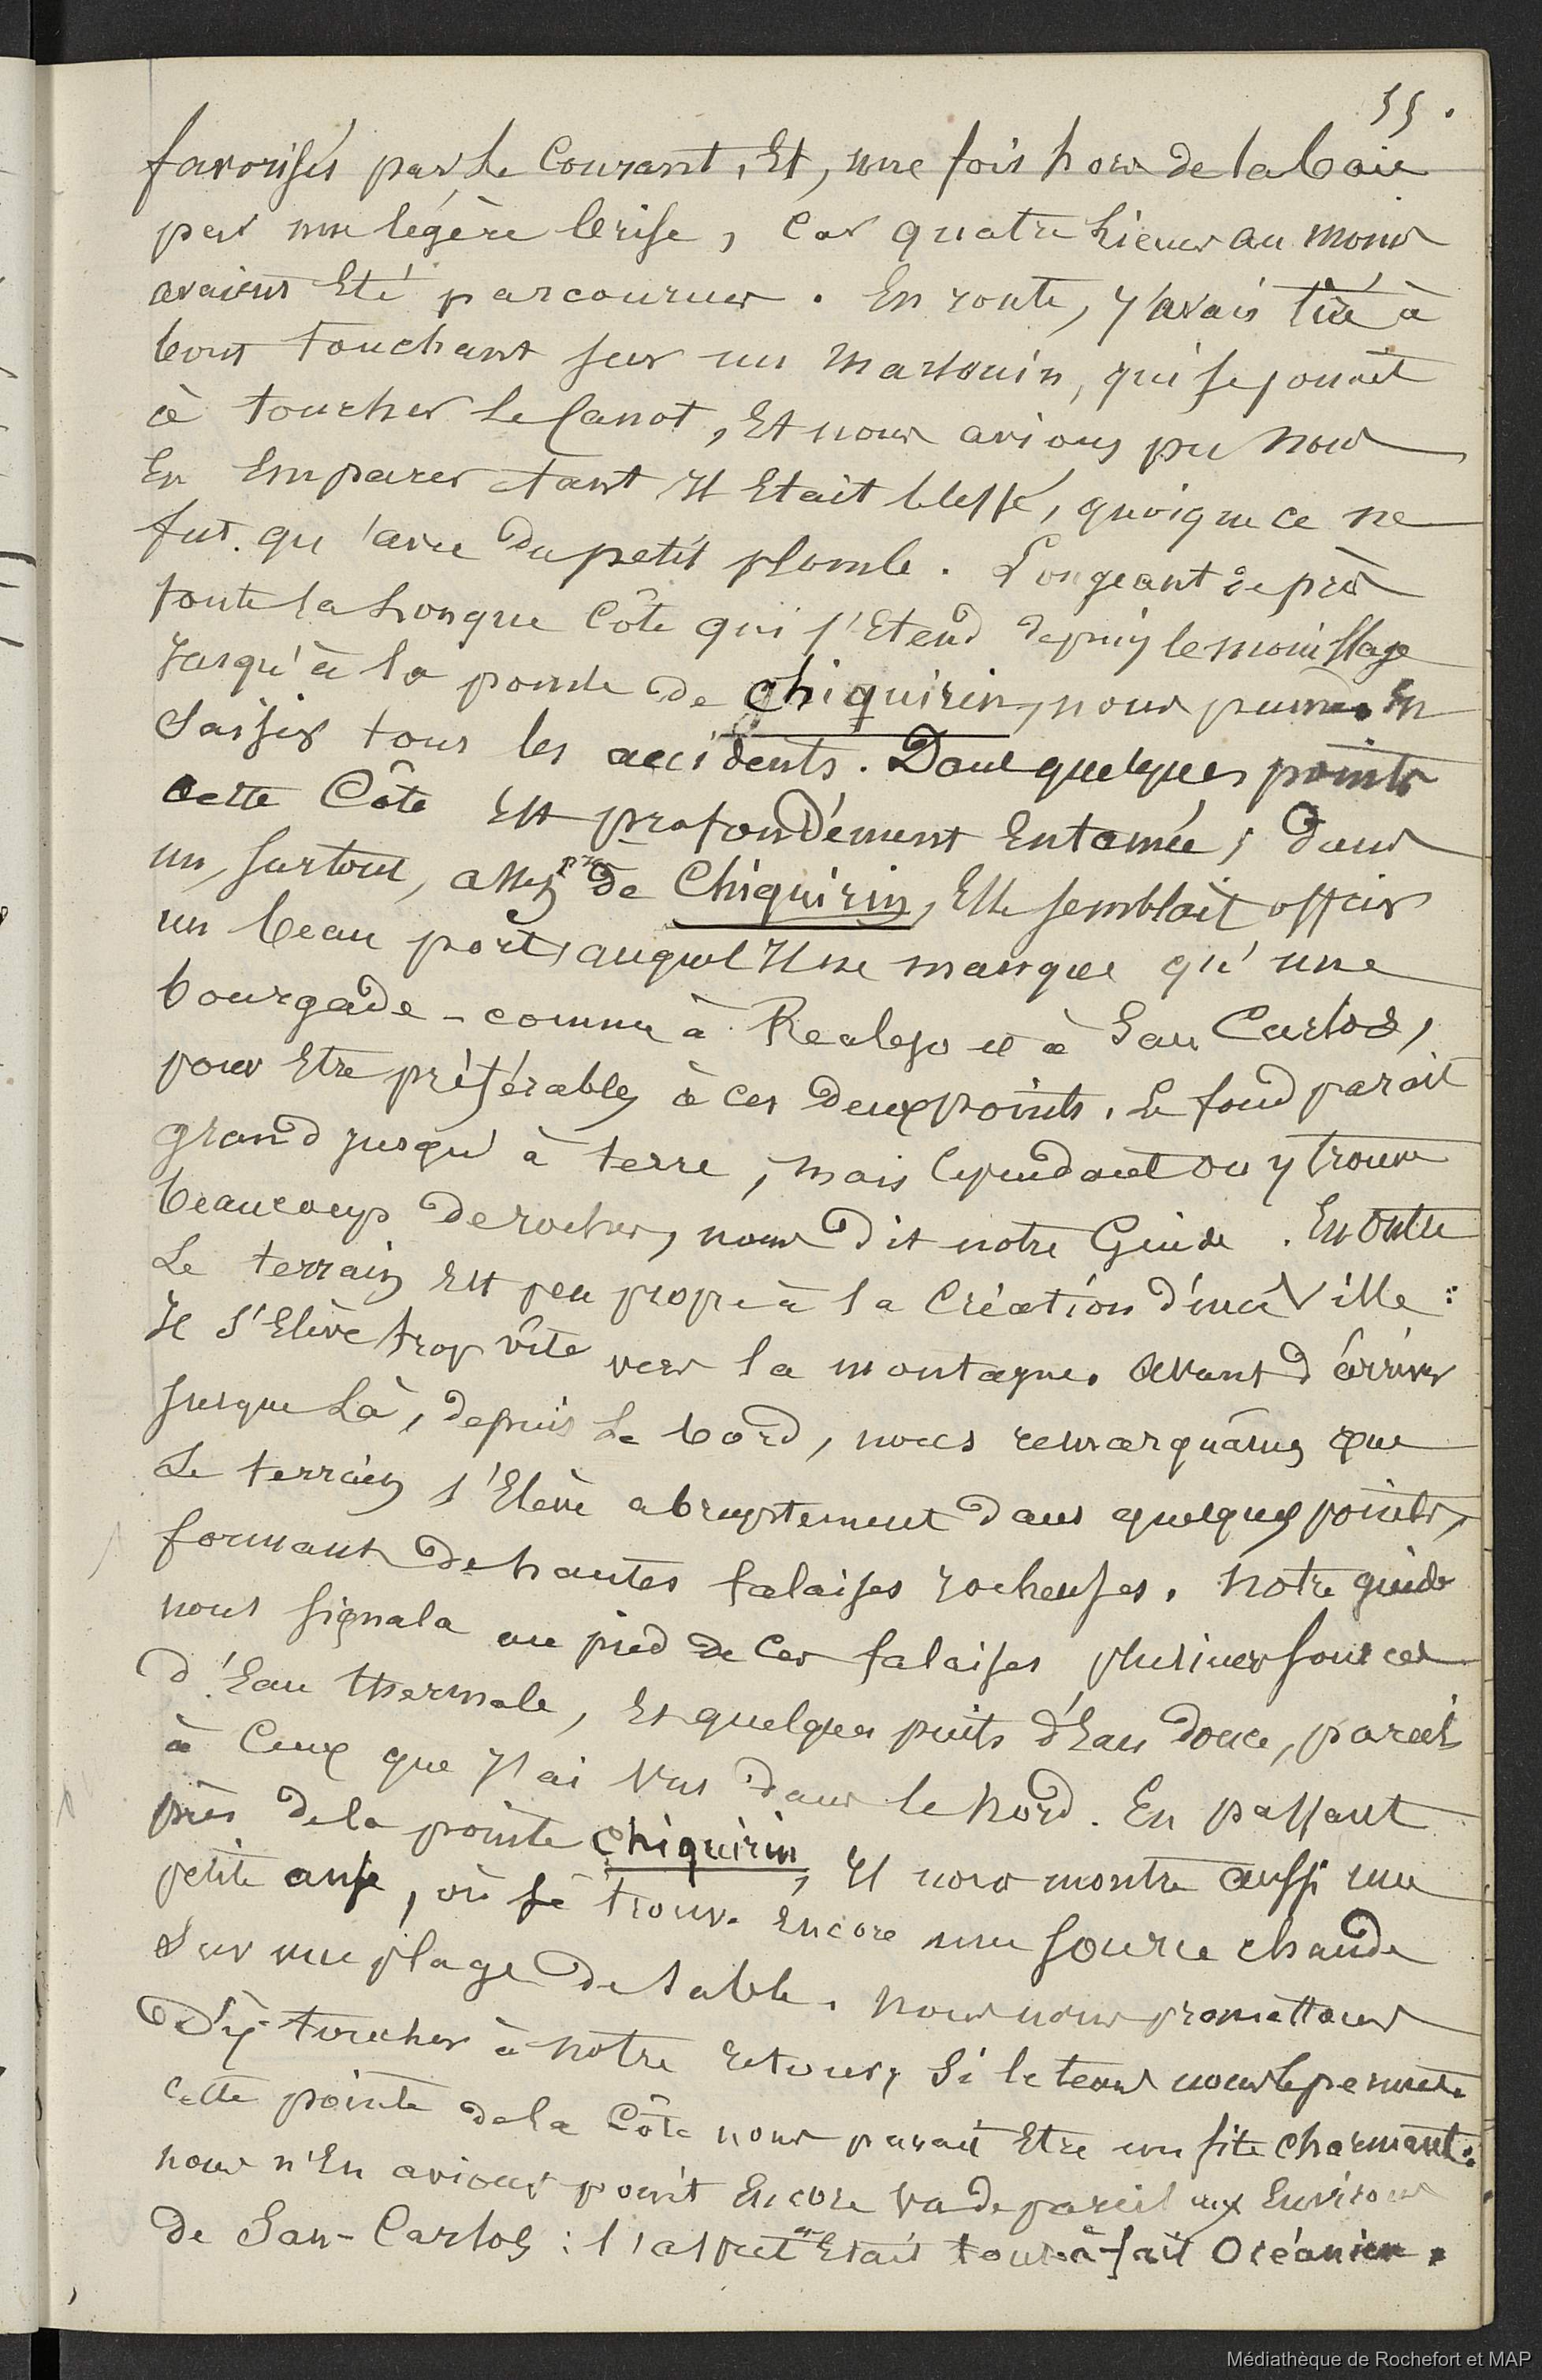 55.
favorisés par Le Courant, Et, une fois hors de la baie
par une légère brise, Car quatre Lieues au moins
avaient Eté parcourues. En route, j'avais tiré à
bout touchant sur un Marsouin, qui se jouait
à toucher Le Canot, Et nous avions pu nous
En Emparer tant Il Etait blessé, quoique ce ne
fut qu'avec du petit plomb. Longeant de près
toute la Longue Côte qui s'Etend depuis le mouillage
Jusqu'à la pointe de Chiquirin, nous pumes En
Saisir tous les accidents. Dans quelques points
cette Côte Est profondément Entamée; dans
un, surtout, assez près de Chiquirin, Elle semblait offrir
un beau port, auquel Il ne manque qu'une
bourgade - comme à Realejo et à San Carlos,
pour Etre préférable à ces deux points. Le fond parait
grand jusqu'à terre, mais Cependant on y trouve
beaucoup de roches, nous dit notre Guide. En outre
Le terrain Est peu propre à la Création d'une Ville:
Il s'Elève trop vîte vers la montagne. Avant d'arriver
jusque Là, depuis Le bord, nous remarquâmes que
Le terrain s'Elève abruptement dans quelques points,
formant de hautes falaises rocheuses. Notre guide
nous signala au pied de Ces falaises plusieurs sources
d'Eau thermale, Et quelques puits d'Eau douce, pareils
à Ceux que J'ai Vus dans le Nord. En passant
près de la pointe Chiquirin, Il nous montre aussi une
petite anse, où se trouve Encore une source chaude
Sur une plage de sable. Nous nous promettons
D'y toucher à notre retour, Si le tems nous le permet.
Cette pointe de la Côte nous parait Etre un site charmant:
nous n'En avions point Encore vu de pareil aux Environs
de San-Carlos: l'aspect en Etait tout-à-fait Océanien.
Médiathèque de Rochefort et MAP